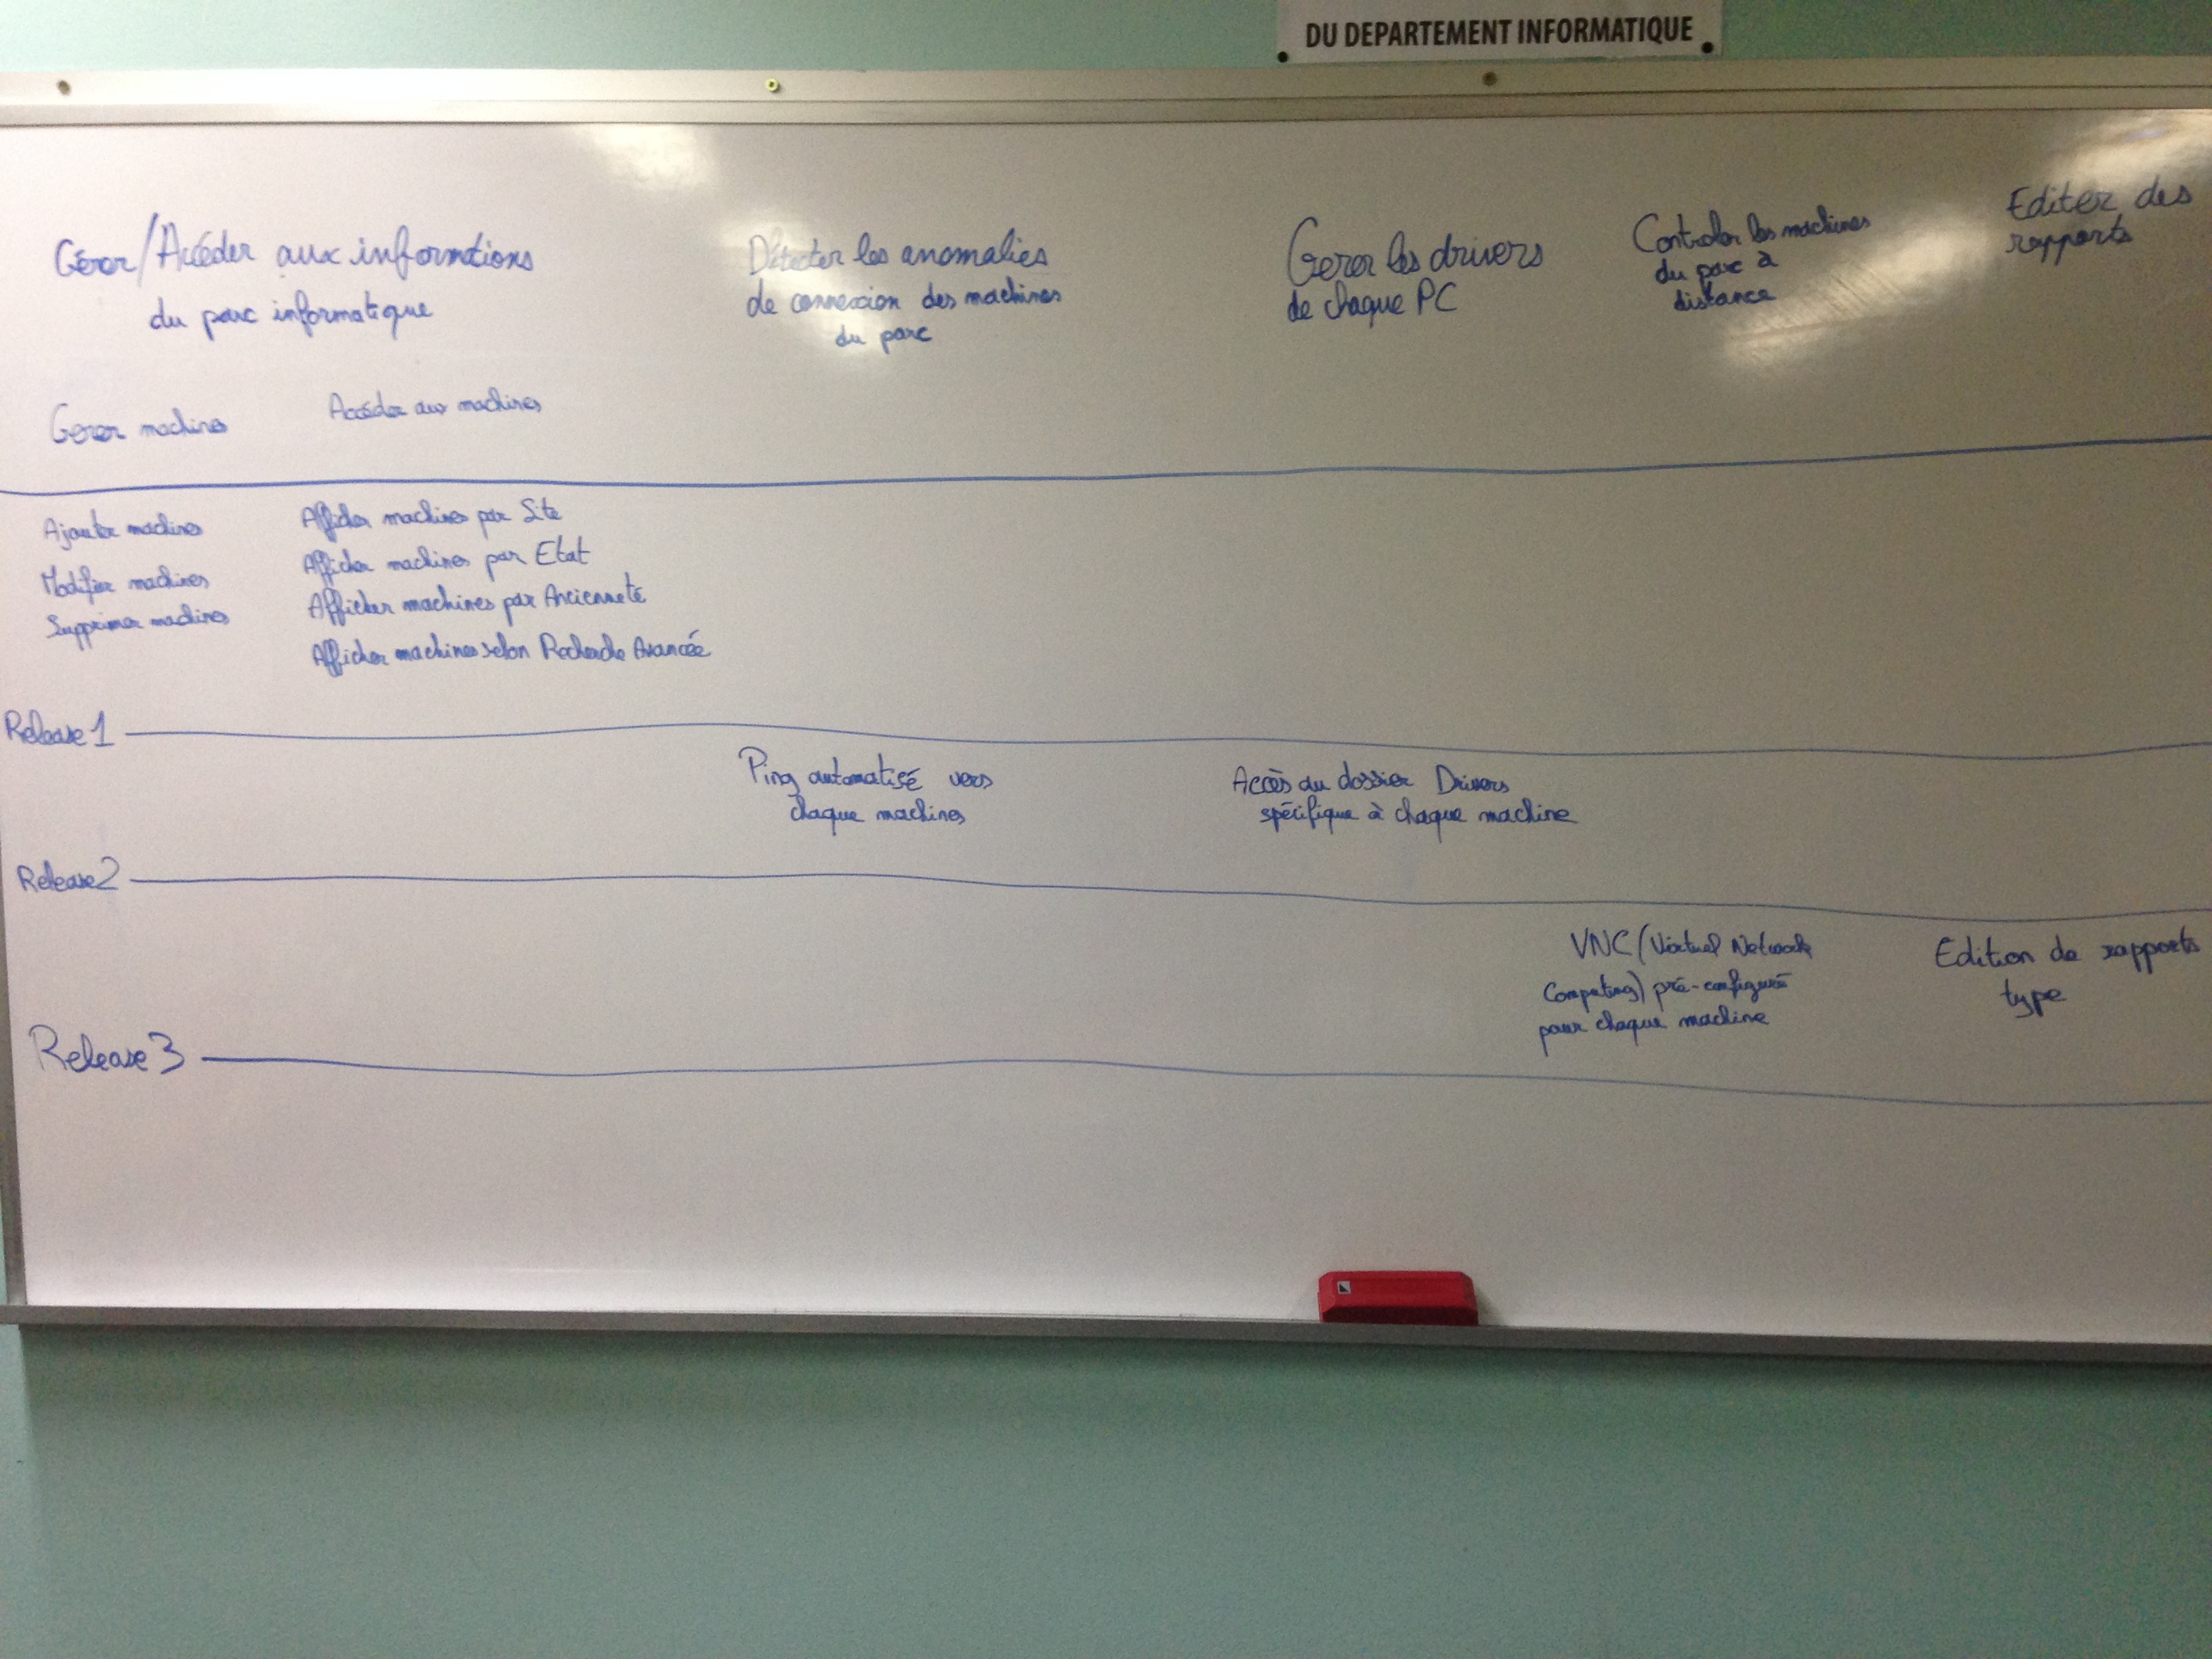 DU DEPARTEMENT INFORMATIQUE
Gérer/Accéder aux informations
du parc informatique
Détecter les anomalies
de connexion des machines
du parc
Gerer les drivers
de chaque PC
Controler les machines
du parc à
distance
Editer des
rapports
Gerer machines
Accéder aux machines
Ajouter machines
Modifier machines
Supprimer machines
Afficher machines par Site
Afficher machines par Etat
Afficher machines par Ancienneté
Afficher machines selon Recherche Avancée
Release 1
Ping automatisé vers
chaque machines
Accès au dossier Drivers
spécifique à chaque machine
Release 2
VNC (Virtuel Network
Computing) pré-configuré
pour chaque machine
Edition de rapports
type
Release 3